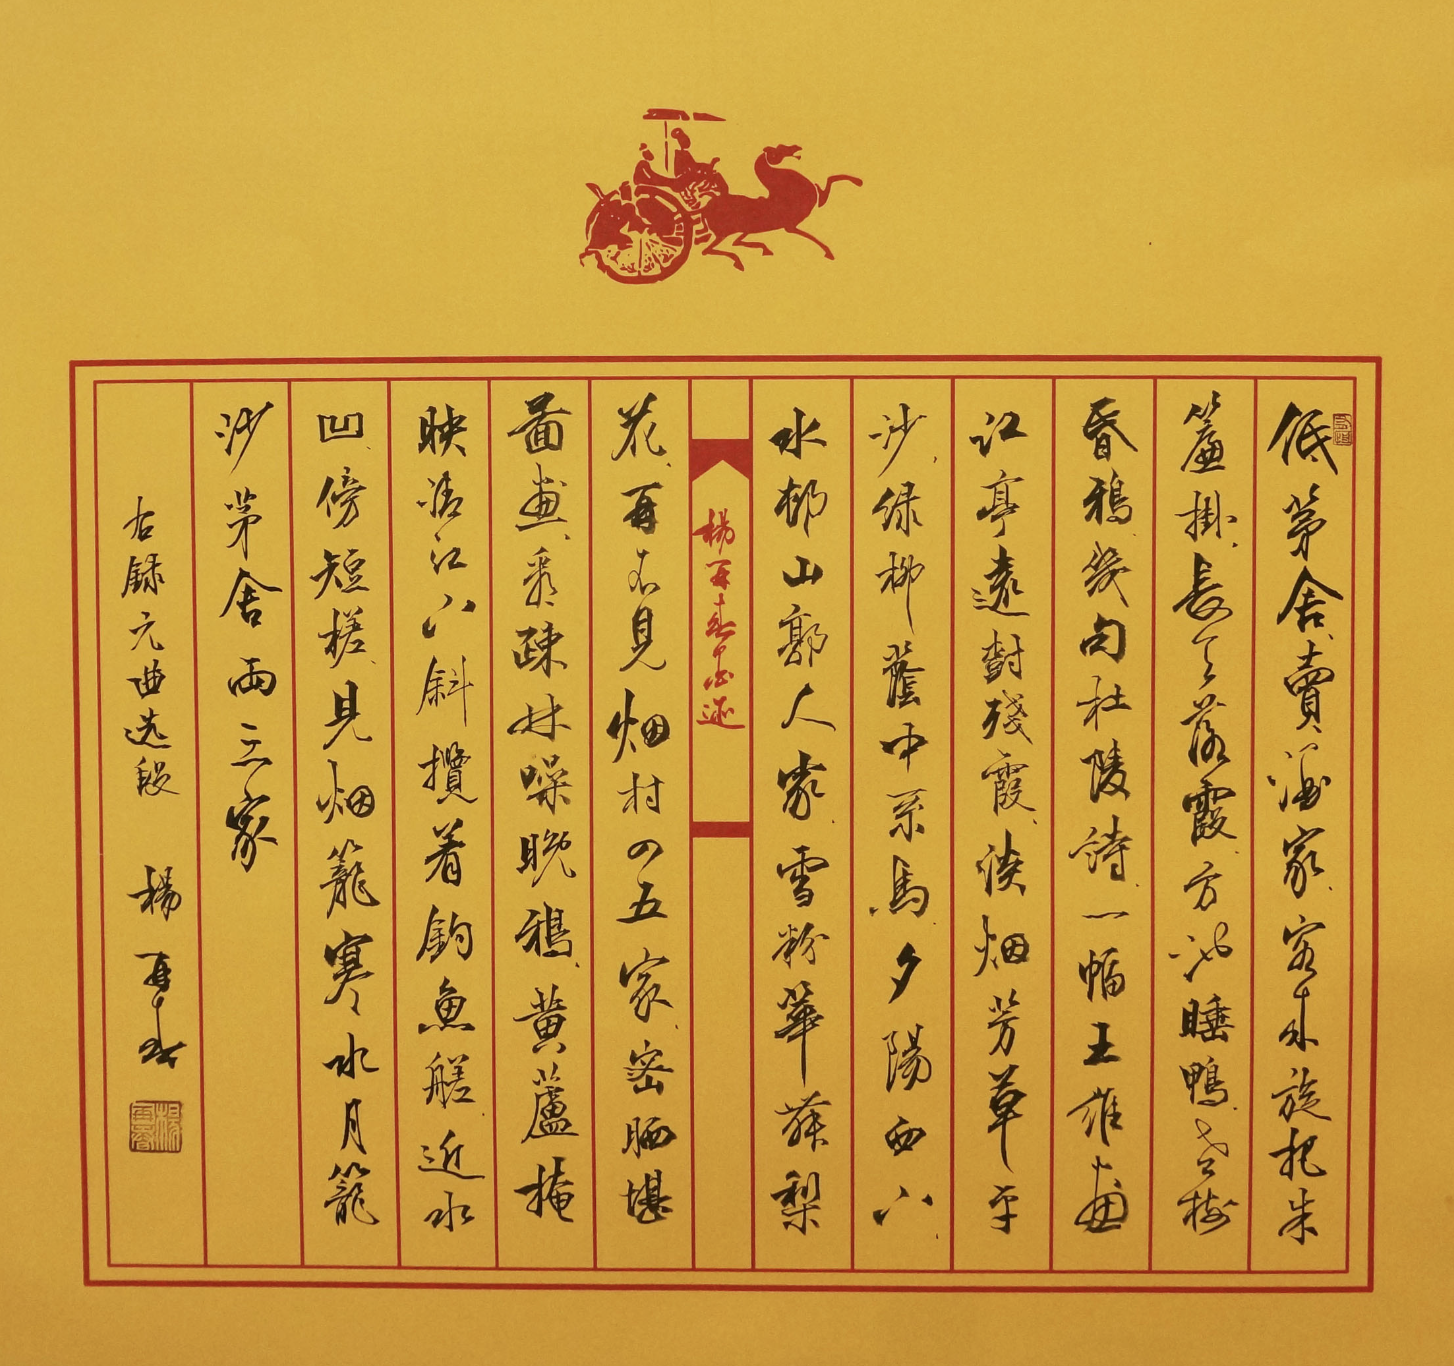 低茅舍賣酒家客来旋把朱
簾掛長天落霞方池睡鴨老樹
昏鴉幾句杜陵詩一幅王維畫
江亭遠樹殘霞淡烟芳草平
沙绿柳蔭中系馬夕陽西八
水邨山郭人家雪粉華舞梨
花再不見烟村四五家密晒堪
啚畫看疎林噪晚鴉黄蘆掩
映清江八斜攬着釣魚艖近水
凹傍短槎見烟籠寒水月籠
沙茅舍兩三家
右録元曲选段 楊再春
楊再春